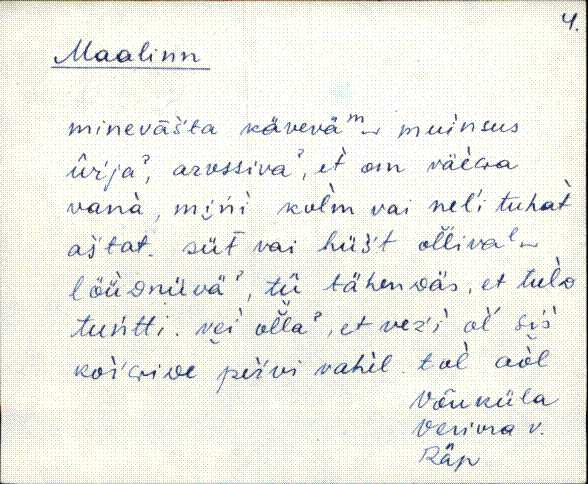 4.
Maalinn
minevāšta kävevä^m‿ muìnsus
ûrja^ʔ, arvssiva^ʔ, et̀ om väèGa
vanà, mińi kolm vai neli tuhat̀
aštat. süt̄ vai hüśt olliva^l‿
löüDnüvä^ʔ, tū tähenDäs, et tulD
tuńtti. vei olla^ʔ, et veži ol̀ siś
košGiDe peŕvi vahèl. tol aòl
Võuküla
Veriora v.
Räp